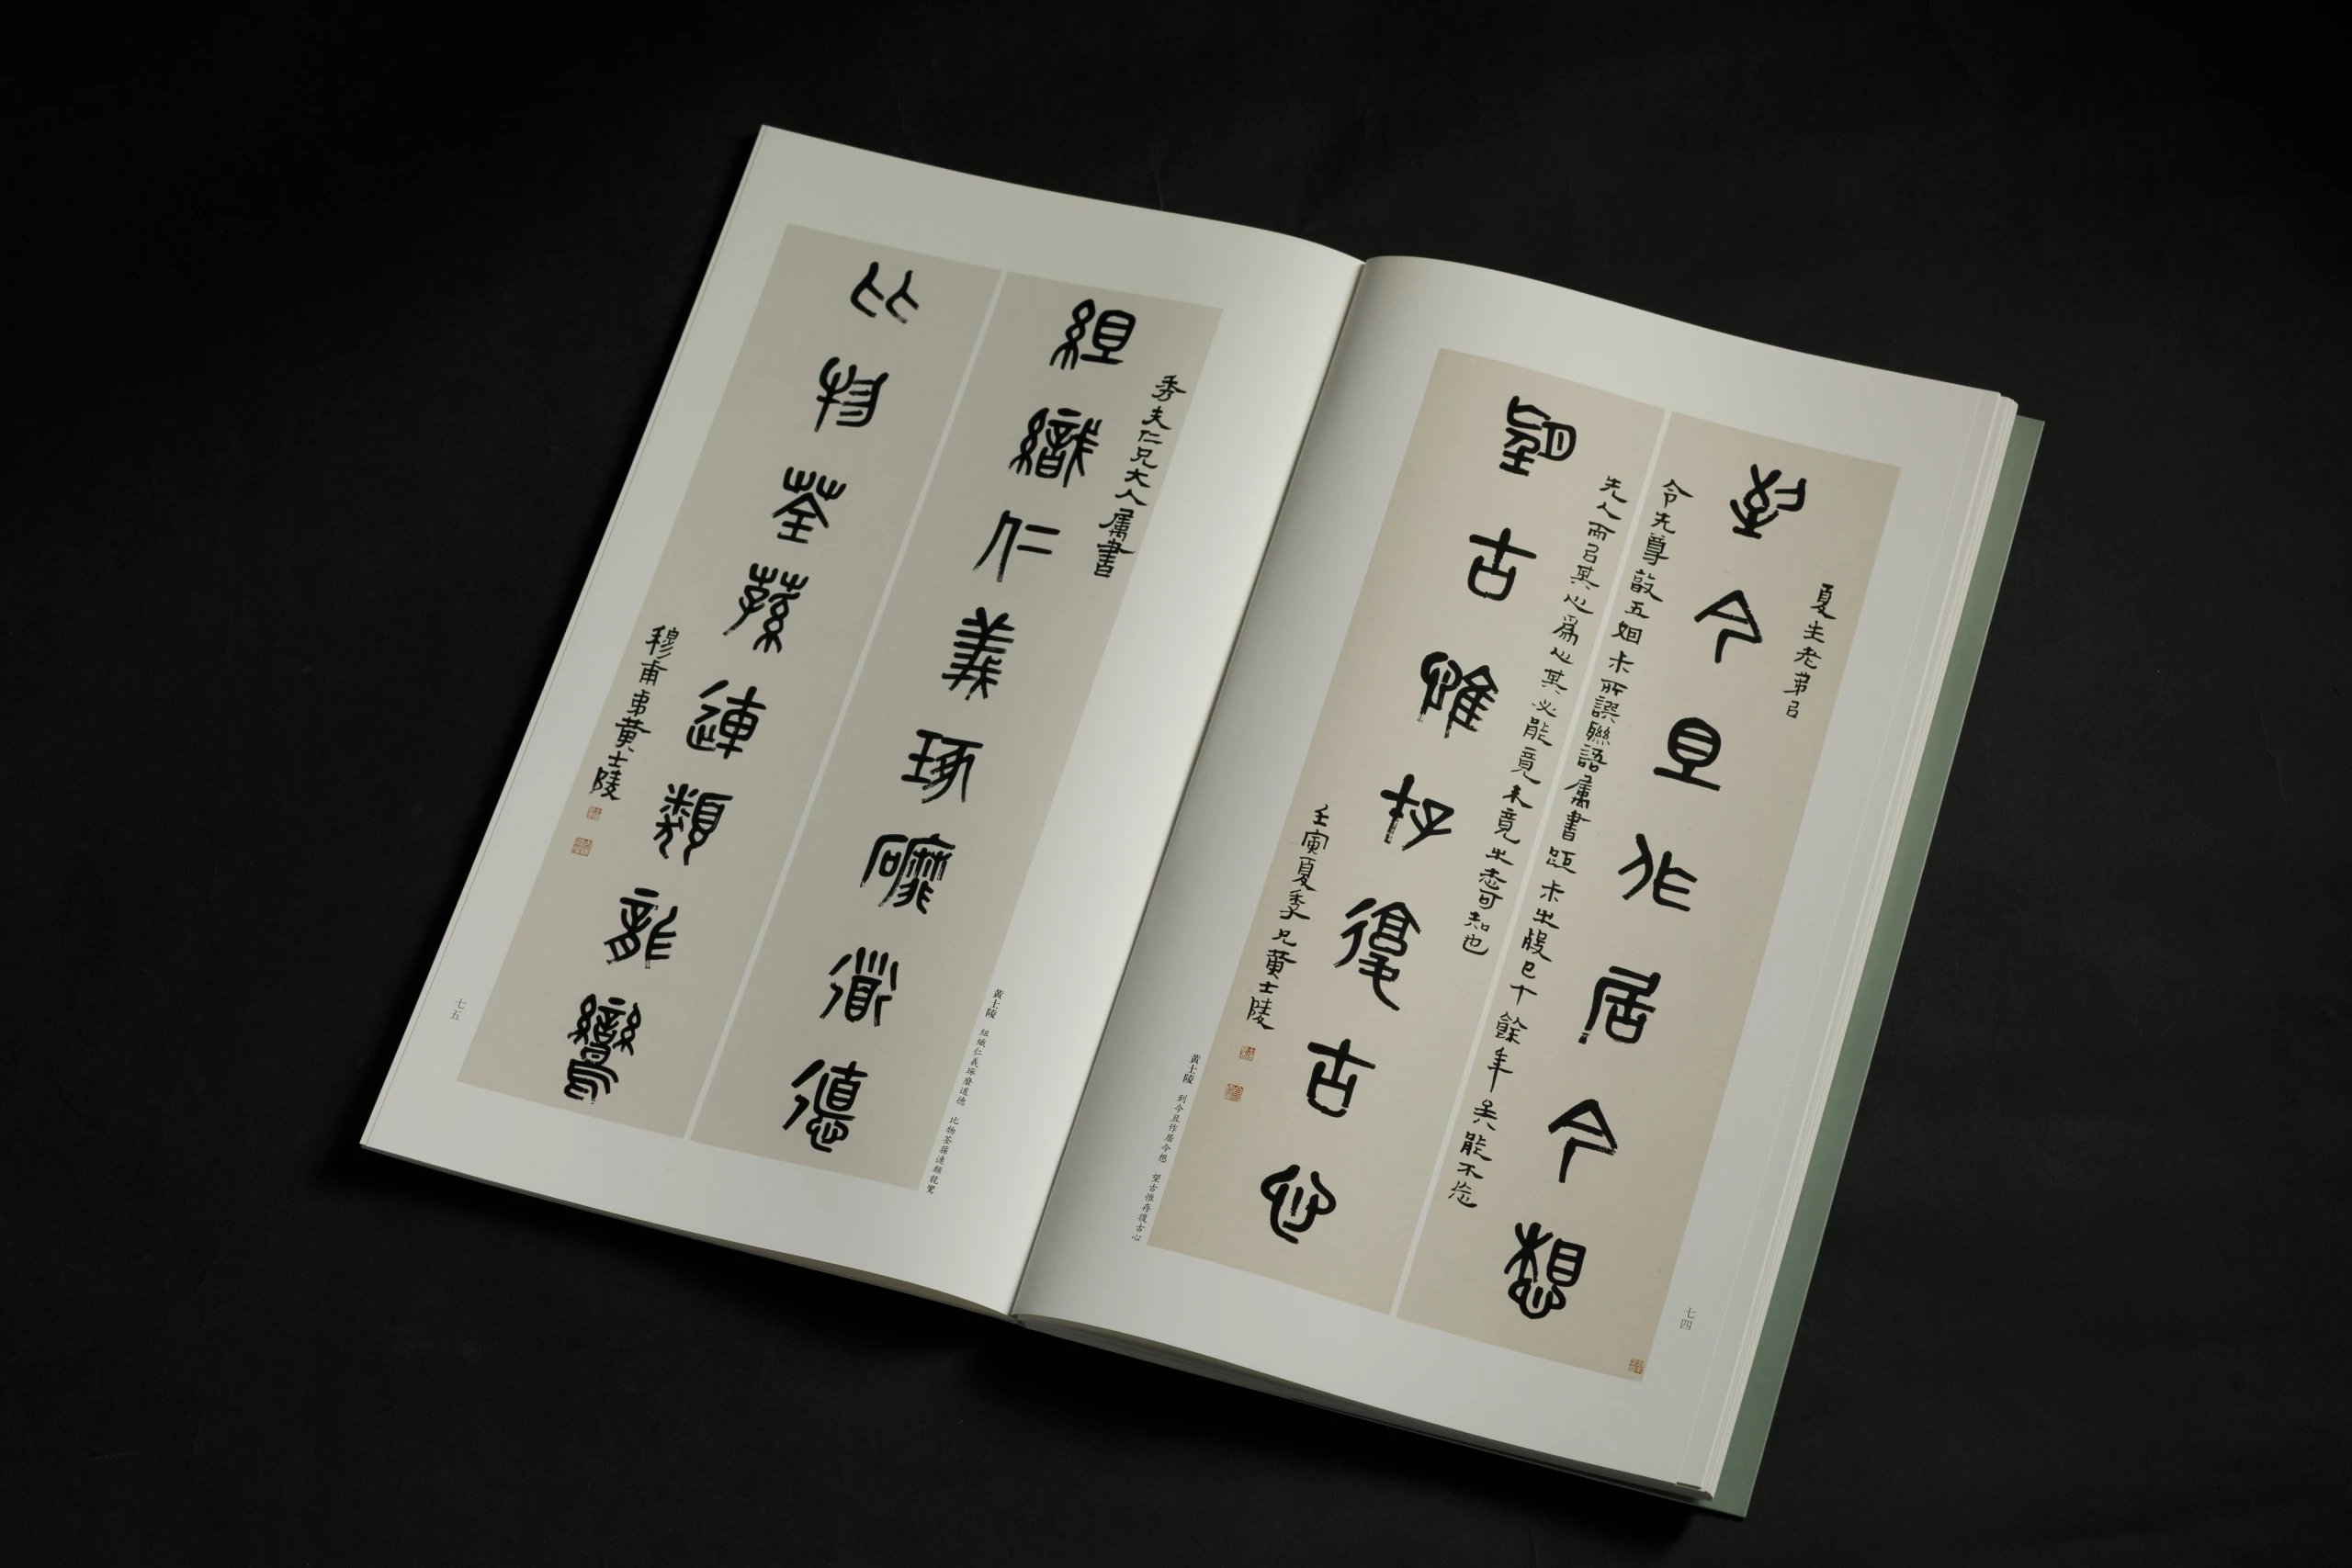 到今且作居今想
夏生老弟㠯
令先尊
五
未所譔聯語屬書距未之
已十餘年矣能不
望古惟存復古心
先人而㠯其心爲心其必能竟未竟之志可知也
壬寅夏季兄黄士陵
黄士陵 到今且作居今想 望古惟存復古心
七四
組織仁義琢磨道德
秀夫仁兄大人屬書
比物荃蓀連類龍鸞
穆甫弟黄士陵
黄士陵 組織仁義琢磨道德 比物荃蓀連類龍鸞
七五